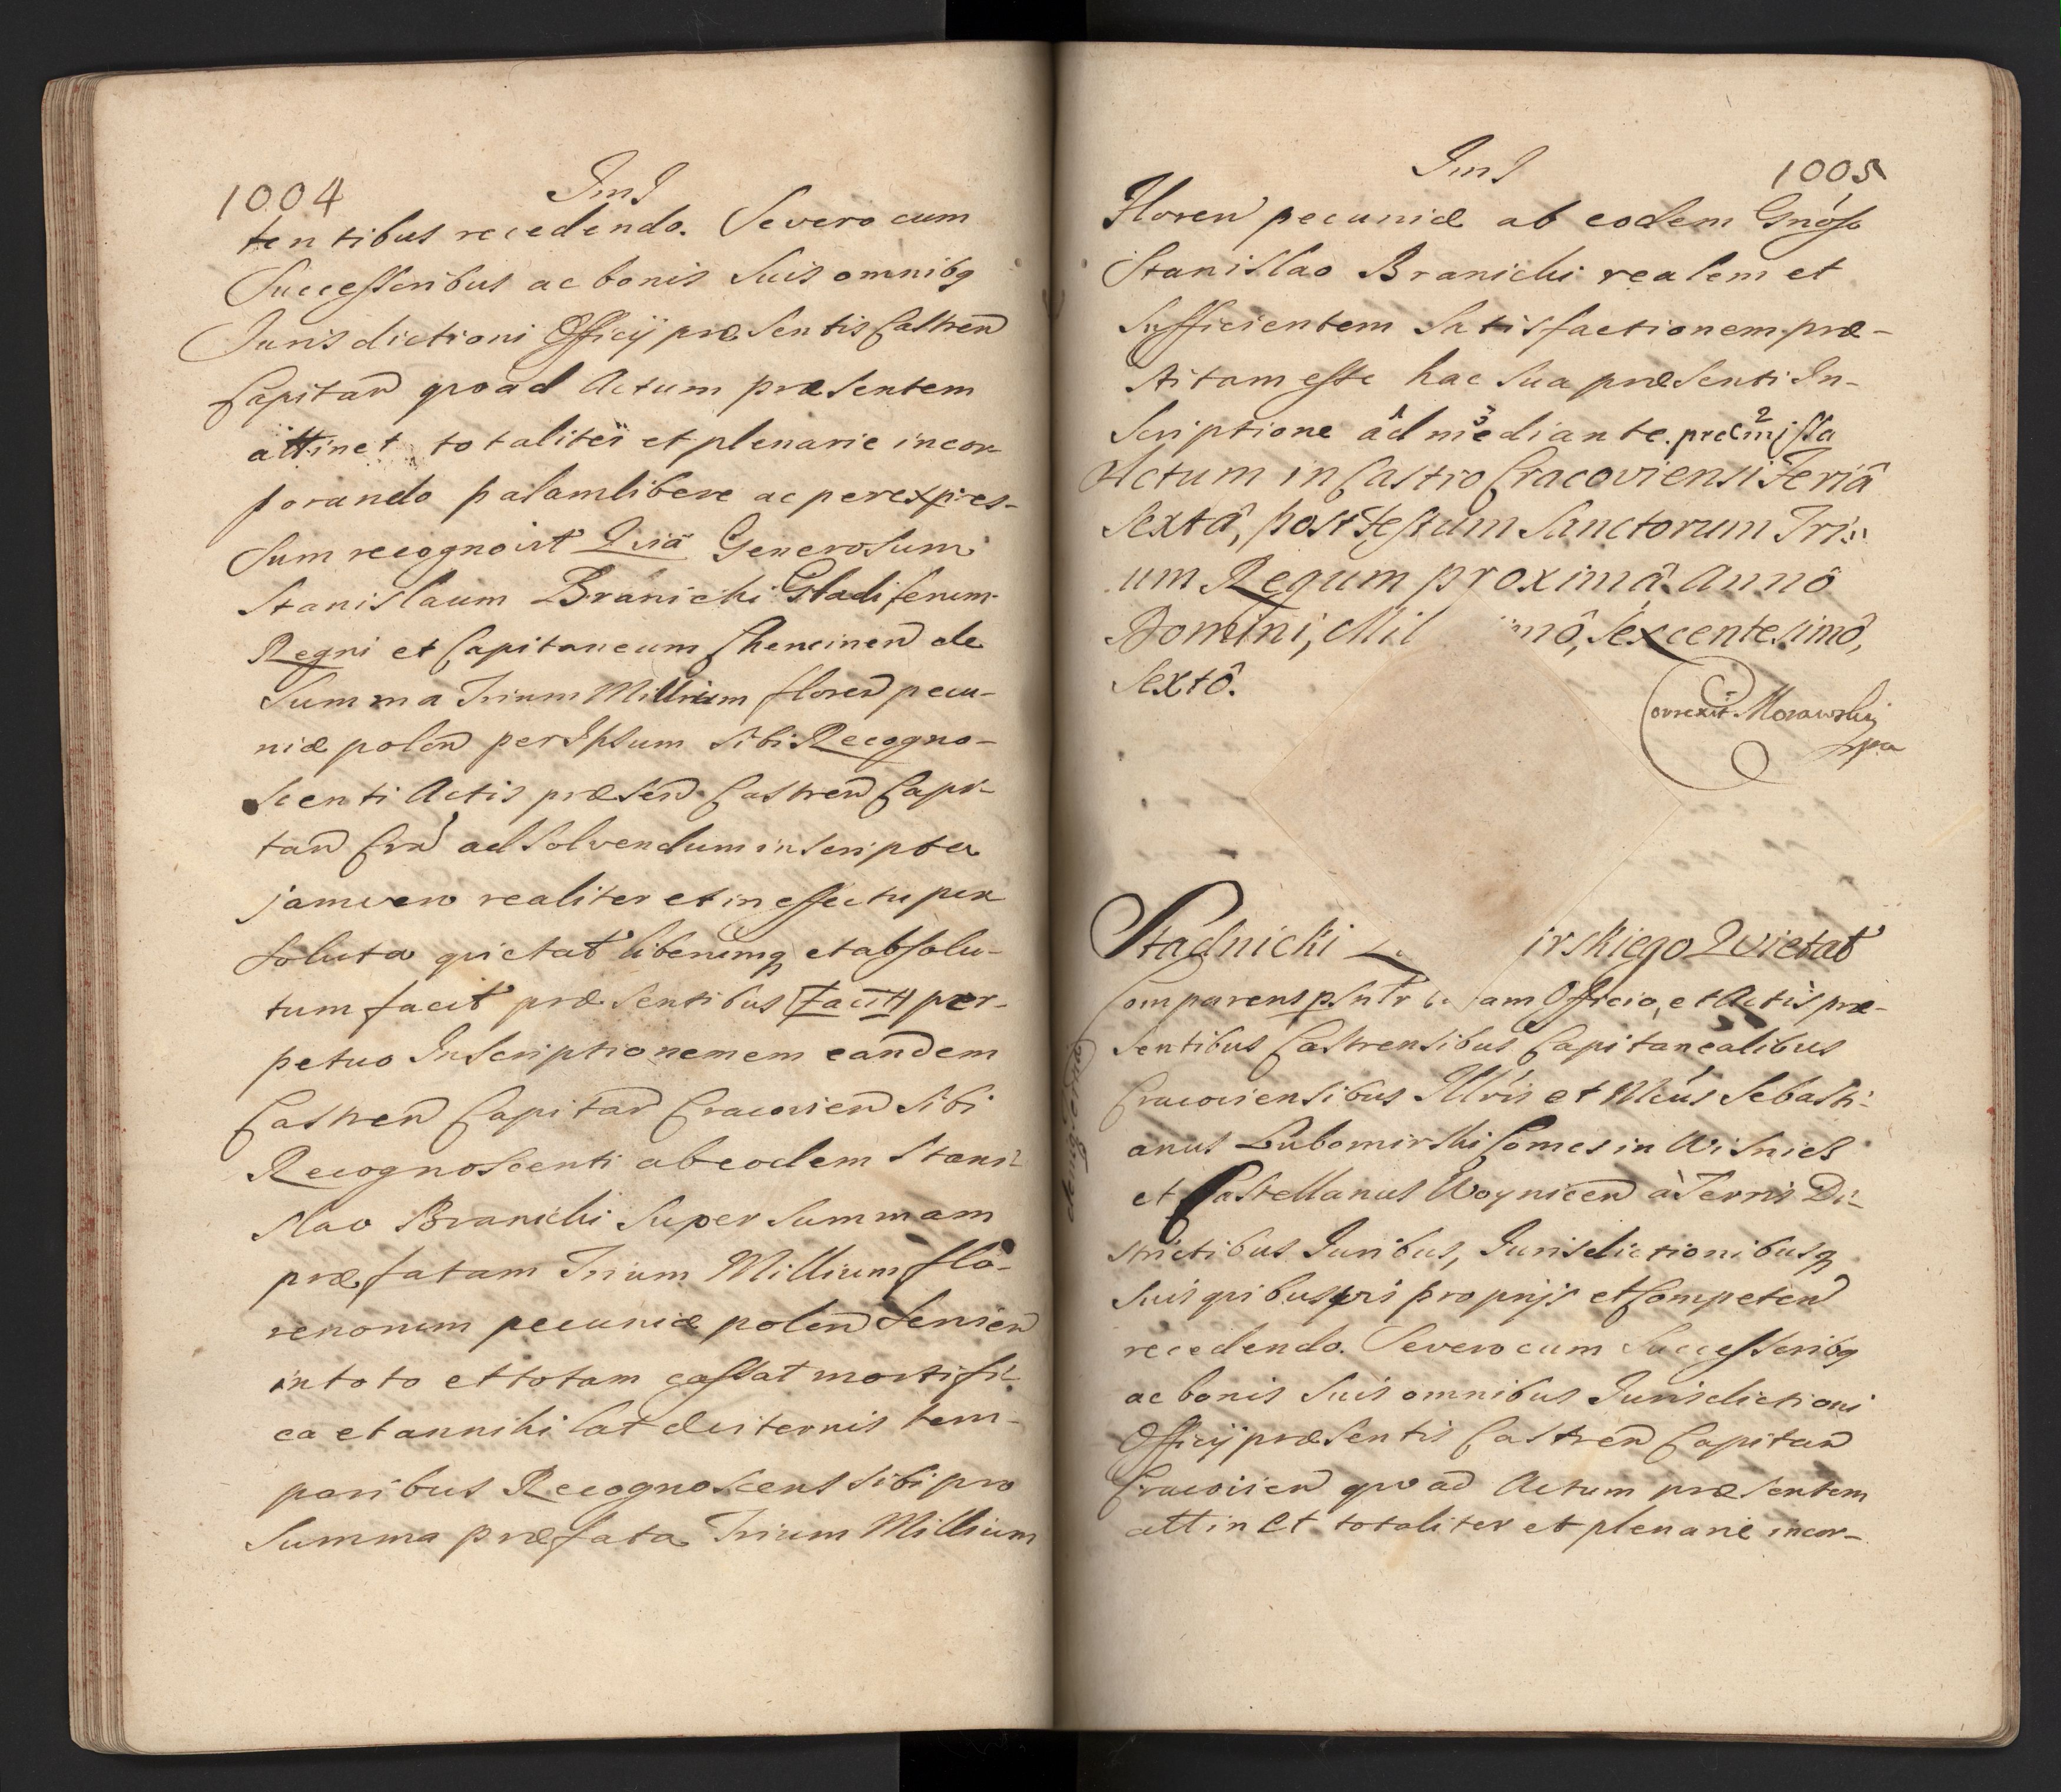 1004
Ims
tentibus recedendo. Severo cum
Successoribus ac bonis Suis omnibq
Jurisdictioni Officij præsentis Castren
Capitan quoad Actum præsentem
attinet totaliter et plenarie incor-
porando palam libere ac per expres-
sum recognovit Quia Generosum
Stanislaum Branichi Gladiferum
Regni et Capitaneum Chencinen de
Summa Trium Millium floren pecu-
niæ polon per Ipsum sibi Recogno-
scenti Actis præsen Castren Capi-
tan Cra ad solvendum inscripta
jamvero realiter et in effectu per
soluta quietat liberumq et absolu-
tum facit præsentibus facit per-
petuo Inscriptionemem eandem
Castren Capitan Cracovien Sibi
Recognoscenti ab eodem Stani-
slao Branichi super summam
præfatam Trium Millium flo-
renorum pecuniæ polon Servien
in toto et totam cassat mortifi-
ca et annihilat æviternis tem-
poribus Recognoscens sibi pro
Summa præfata Trium Millium
Ims
1005
Floren pecuniæ ab eodem Gnoso
Stanislao Branichi realem et
sufficientem Satisfactionem præ-
stitam esse hac sua præsenti In-
scriptione ad mediante. præmissa
Actum in Castro Cracoviensi Feriâ
sextâ, post Festum Sanctorum Tri-
um Regum proximâ Annô
Domini, Mil imô, sexcentesimô,
Sextô.
Correxit Morawski
mpa
Stadnicki L irskiego Quietat
Comparens psntr am Officio, et Actis præ-
sentibus Castrensibus Capitanealibus
Cracoviensibus Illris et Mcus Sebasti-
anus Lubomirski Comes in Wisnics
et Castellanus Woynicen à Terris Di-
strictibus Iuribus, Iurisdictionibusq
suis quibusvis proprijs et Competen
recedendo. Severo cum Successoribq
ac bonis suis omnibus Iurisdictioni
Officij præsentis Castren Capitan
Cracovien quoad Actum præsentem
attinet totaliter et plenarie incor-